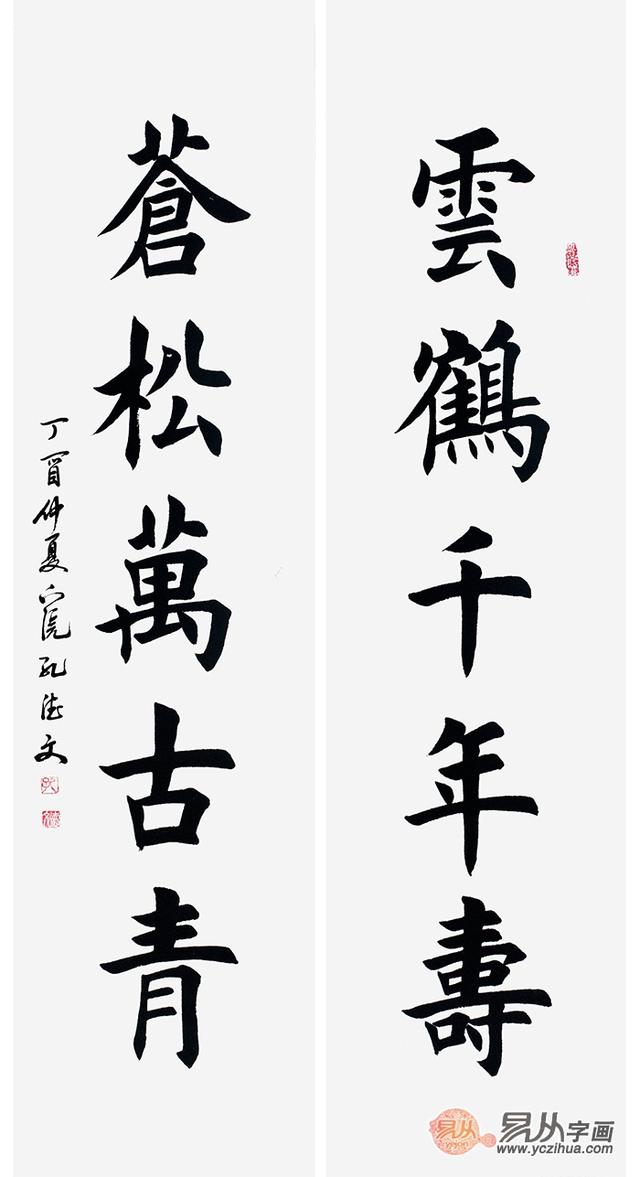 雲鶴千年壽
蒼松萬古青
丁酉仲夏
孔德文
易从字画
www.yczihua.com